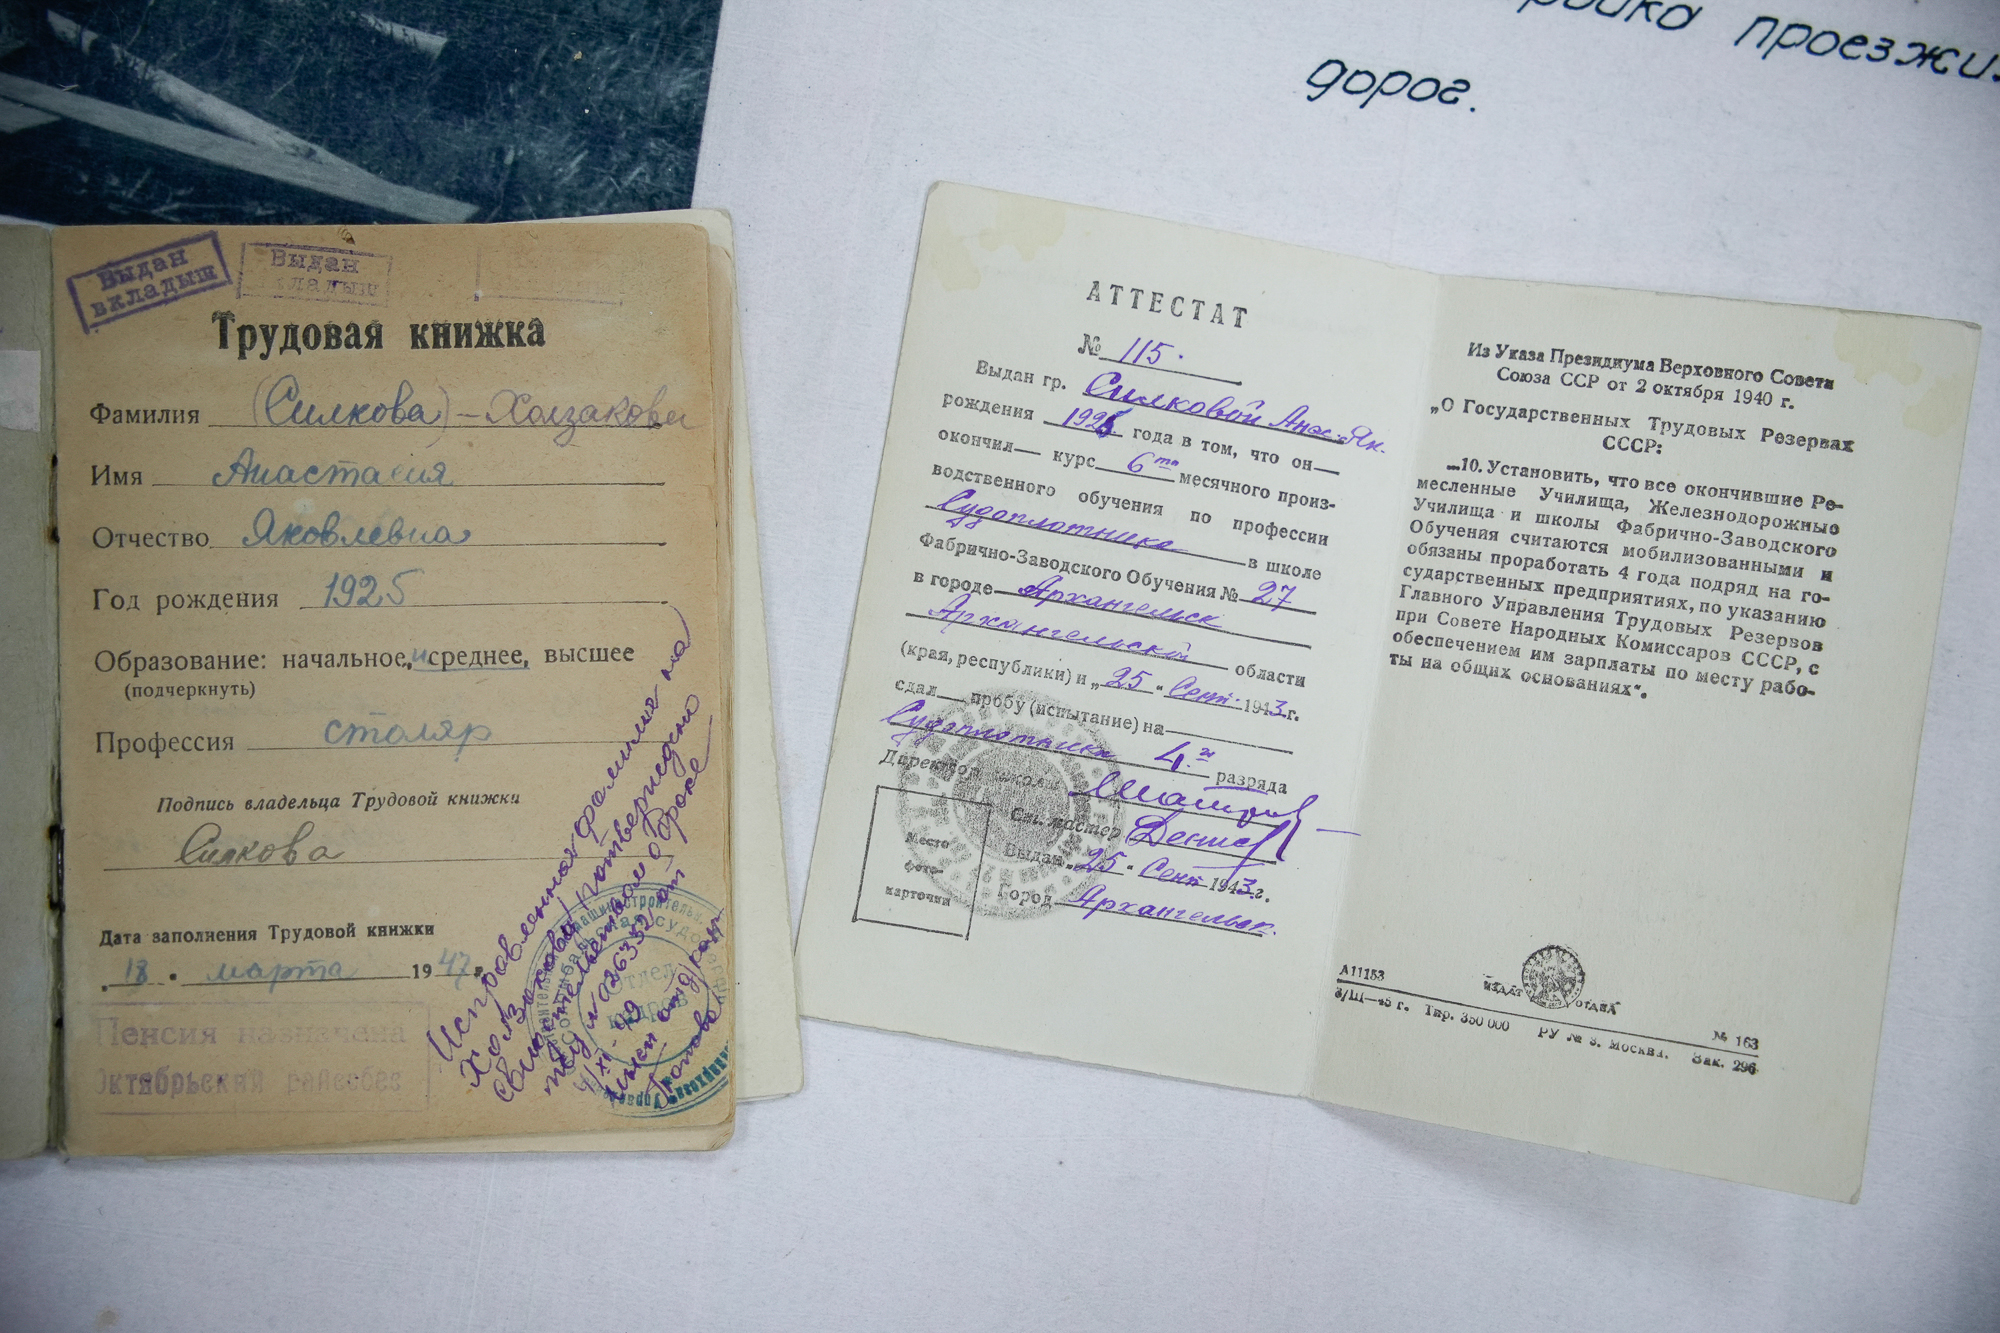 проезжих
дорог.
Выдан
вкладыш
Выдан
вкладыш
Трудовая книжка
Фамилия (Силкова) – Холзакова
Имя Анастасия
Отчество Яковлевна
Год рождения 1925
Образование: начальное, среднее, высшее
(подчеркнуть)
Профессия столяр
Подпись владельца Трудовой книжки
Силкова
Дата заполнения Трудовой книжки
18 . марта 1947 г.
Пенсия назначена
Октябрьский райсобес
Исправленная фамилия на
Холзакова подтверждено
свидетельством о браке
№ 026352 от
Отдел
кадров
АТТЕСТАТ
№ 115.
Выдан гр. Силковой Анас. Як.
рождения 1925 года в том, что он—
окончил— курс 6ти месячного произ-
водственного обучения по профессии
Судоплотника в школе
Фабрично-Заводского Обучения № 27
в городе Архангельск
Архангельской области
(края, республики) и „25 " Сент. 1943 г.
сдал— пробу (испытание) на
Судоплотника 4.й разряда
Директор школы
Ст. мастер Денис
Выдан „25 " Сент 1943 г.
Город Архангельск.
Место
фото-
карточки
Из Указа Президиума Верховного Совета
Союза ССР от 2 октября 1940 г.
„О Государственных Трудовых Резервах
СССР:
„10. Установить, что все окончившие Ре-
месленные Училища, Железнодорожные
Училища и школы Фабрично-Заводского
Обучения считаются мобилизованными и
обязаны проработать 4 года подряд на го-
сударственных предприятиях, по указанию
Главного Управления Трудовых Резервов
при Совете Народных Комиссаров СССР, с
обеспечением им зарплаты по месту рабо-
ты на общих основаниях".
ИЗДАТ ОТДЕЛ
А11153 № 163
3/III—45 г. Тир. 350 000 РУ № 3. Москва. Зак. 296